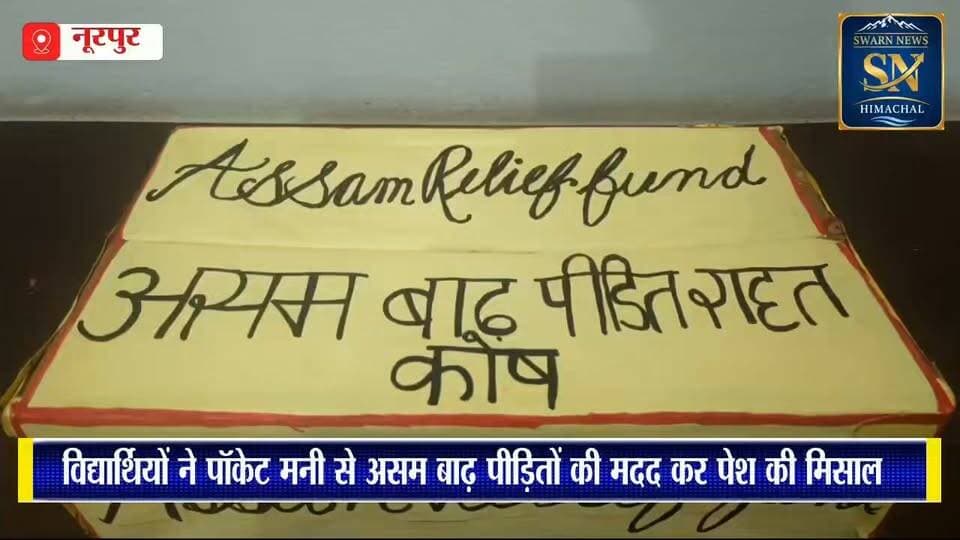 नूरपुर
SWARN NEWS
SN
HIMACHAL
Assam Relief fund
असम बाढ़ पीडित राहत
कोष
विद्यार्थियों ने पॉकेट मनी से असम बाढ़ पीड़ितों की मदद कर पेश की मिसाल